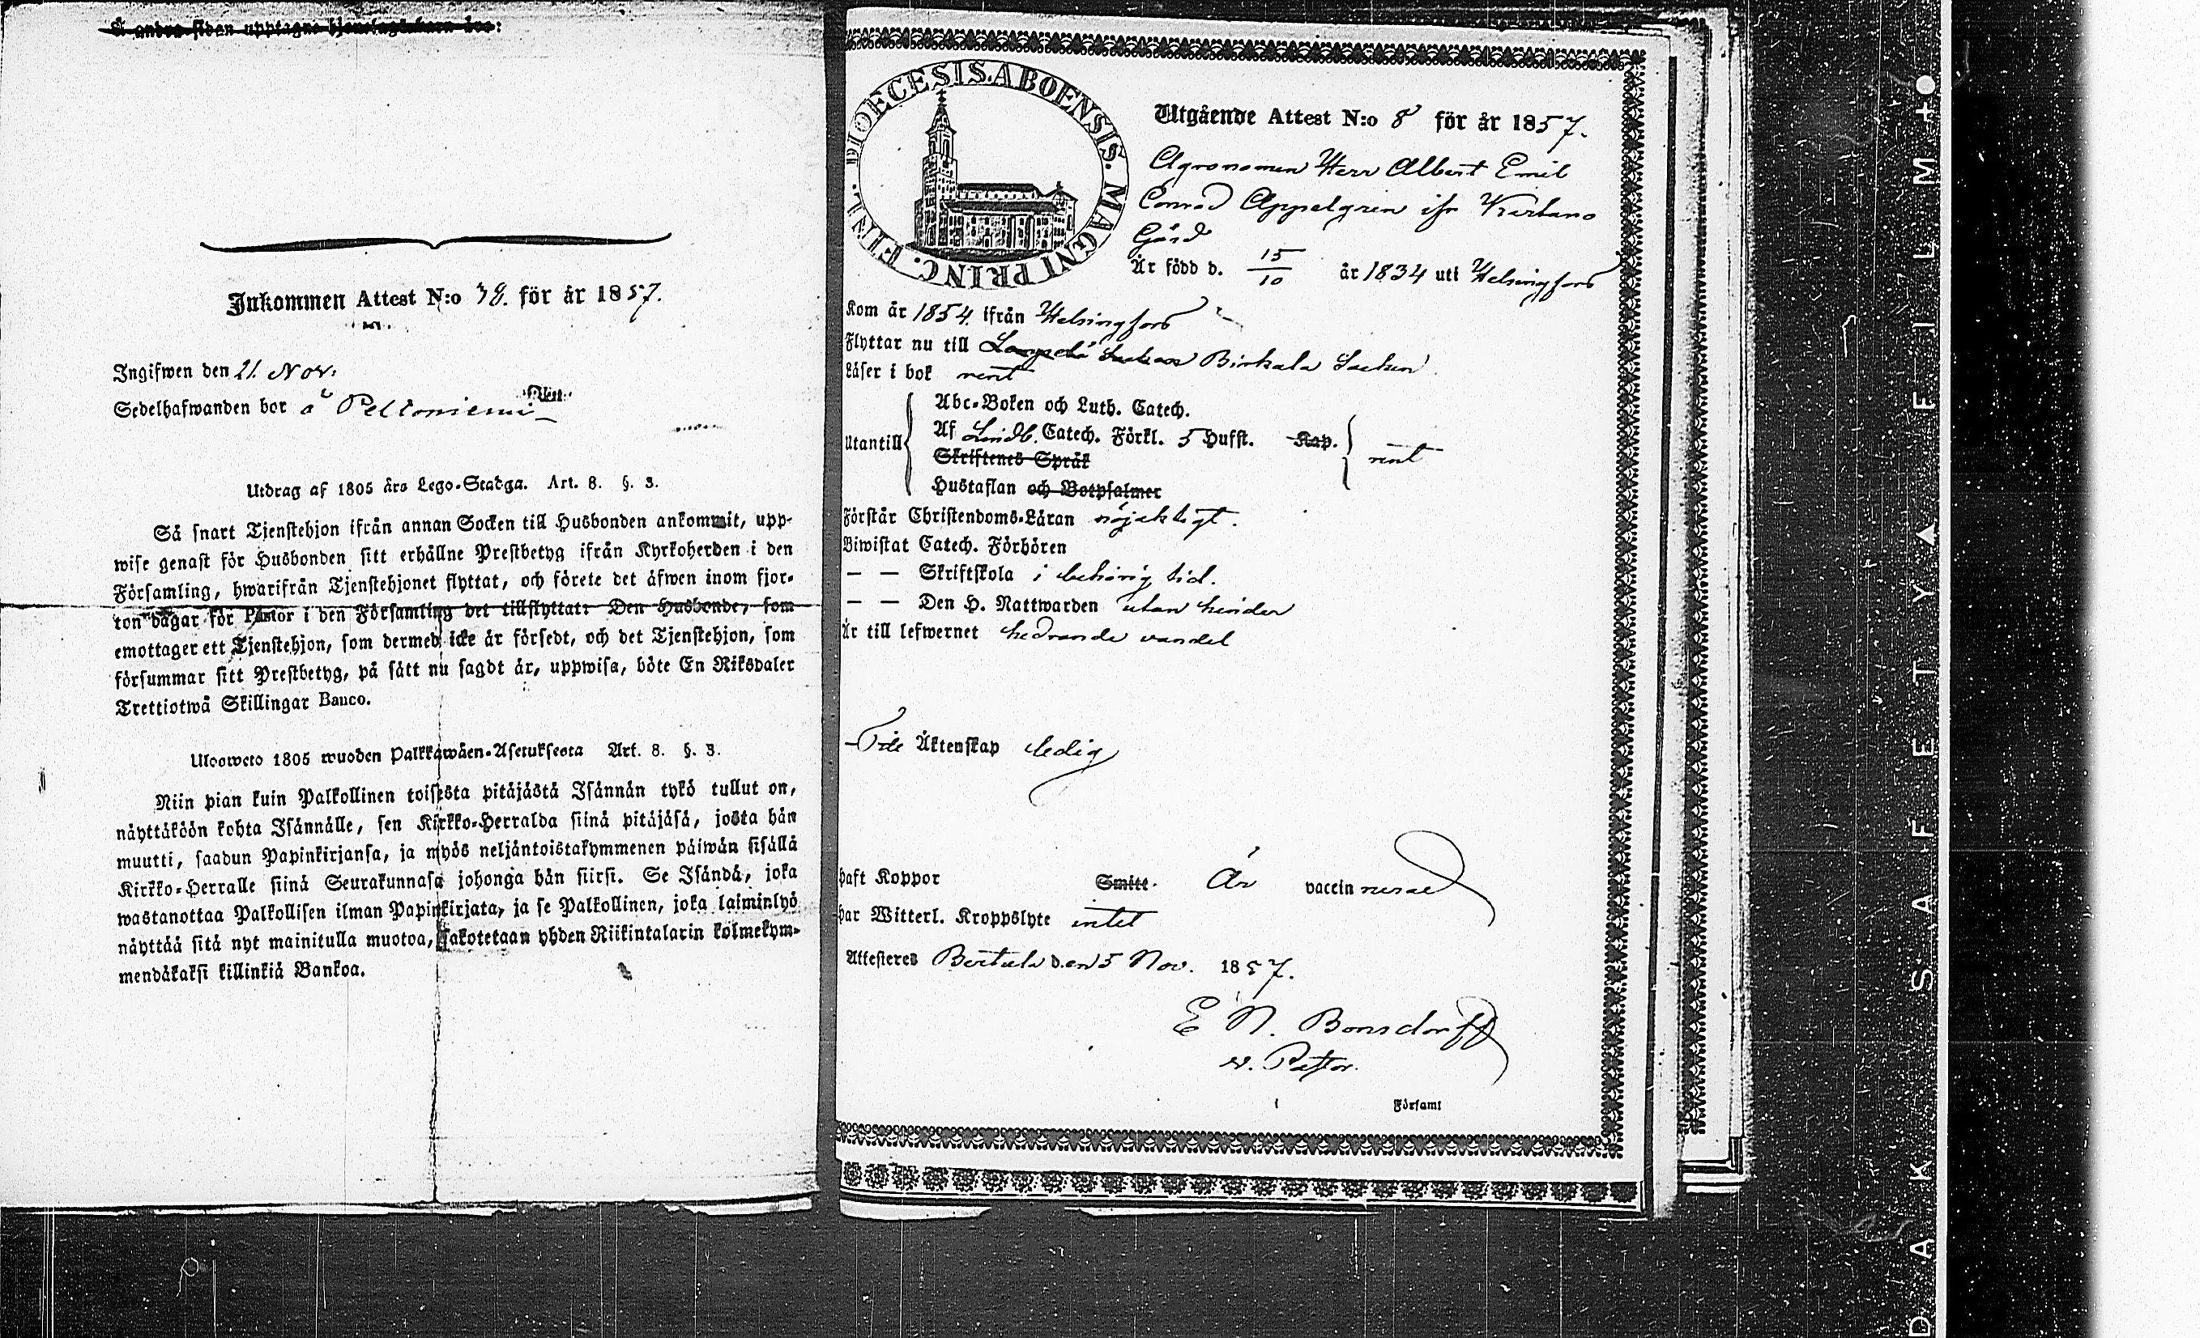 Å andra sidan upptagne tjenstegöbarn äro:
Inkommen Attest N:o 38. för år 1857.
Ingifwen den 21. Nov.
Sedelhafwanden bor å Peltoniemi
Utdrag af 1805 års Lego-Stadga. Art. 8. §. 3.
Så snart Tjenstehjon ifrån annan Socken till Husbonden ankommit, upp-
wise genast för Husbonden sitt erhållne Prestbetyg ifrån Kyrkoherden i den
Församling, hwarifrån Tjenstehjonet flyttat, och förete det äfwen inom fjor-
ton dagar för Pastor i den Församling det tillflyttat: Den Husbonde, som
emottager ett Tjenstehjon, som dermed icke är försedt, och det Tjenstehjon, som
försummar sitt Prestbetyg, på sätt nu sagdt är, uppwisa, böte En Riksdaler
Trettiotwå Skillingar Banco.
Ulosweto 1805 wuoden Palkkawäen-Asetuksesta Art. 8. §. 3.
Niin pian kuin Palkollinen toisesta pitäjästä Isännän tykö tullut on,
näyttäköön kohta Isännälle, sen Kirkko-Herralda siinä pitäjäsä, josta hän
muutti, saadun Papinkirjansa, ja myös neljäntoistakymmenen päiwän sisällä
Kirkko-Herralle siinä Seurakunnasa johonga hän siirsi. Se Isändä, joka
wastanottaa Palkollisen ilman Papinkirjata, ja se Palkollinen, joka laiminlyö
näyttää sitä nyt mainitulla muotoa, sakotetaan yhden Riikintalarin kolmekym-
mendäkaksi killinkiä Bankoa.
DIOECESIS. ABOENSIS. MAGNI PRINC. FINL.
Utgående Attest N:o 8 för år 1857.
Agronomen Herr Albert Emil
Conrad Appelgren ifr
Gård
Är född d. 15/10 år 1834 uti Helsingfors
Kom år 1854 ifrån Helsingfors
Flyttar nu till Birkala Socken
Läser i bok rent
Abc-Boken och Luth. Catech.
Utantill Af Lindb. Catech. Förkl. 5 Hufst. Kap. rent
Skriftenes Språk
Hustaflan och Botpsalmer
Förstår Christendoms-Läran nöjaktigt.
Biwistat Catech. Förhören
— — Skriftskola i behörig tid.
— — Den H. Nattwarden utan hinder
Är till lefwernet hedrande vandel
Till Äktenskap ledig
haft Koppor Smitt. Är vaccinnerad
har Witterl. Kroppslyte intet
Attesteres Bertula den 5 Nov. 1857.
E N. Bonsdorff
v. Pastor.
i Församl
SAFETY FILM